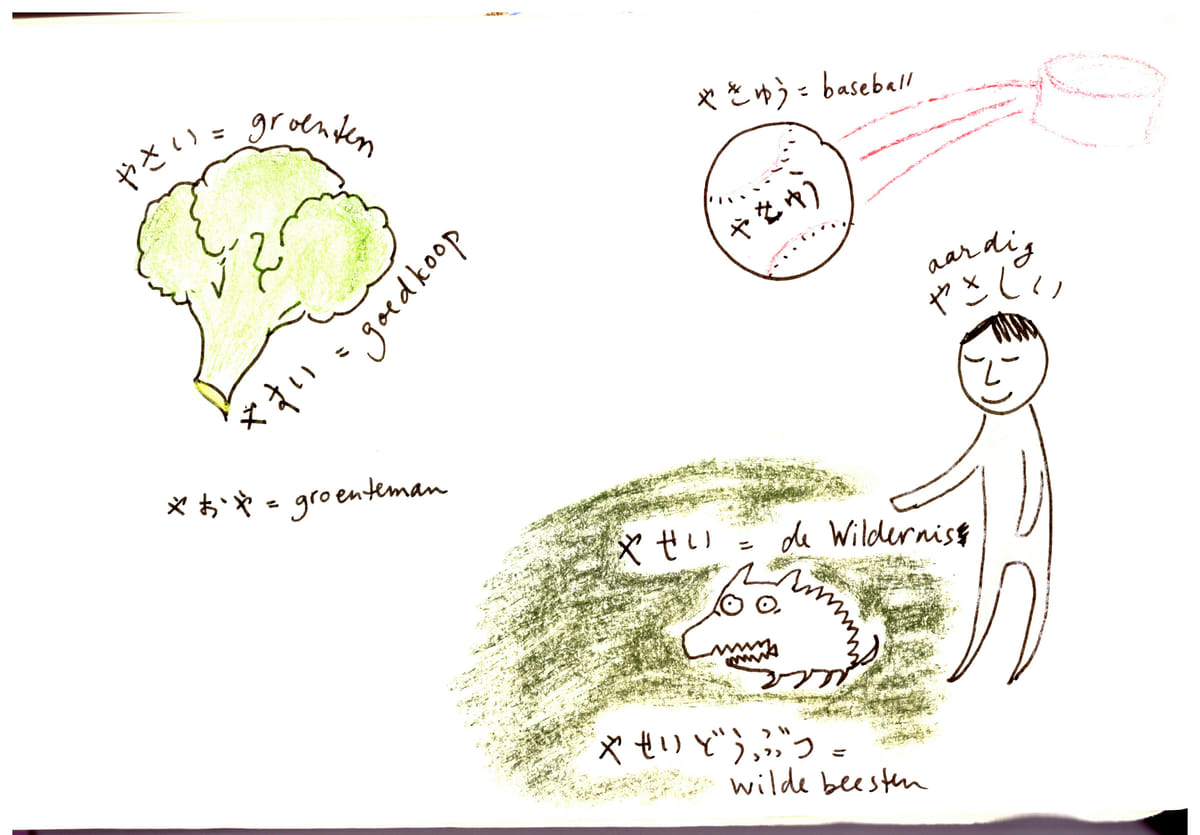 やさい = groenten
やすい = goedkoop
やおや = groenteman
やきゅう = baseball
やきゅう
aardig
やさしい
やせい = de Wildernis
やせいどうぶつ =
wilde beesten